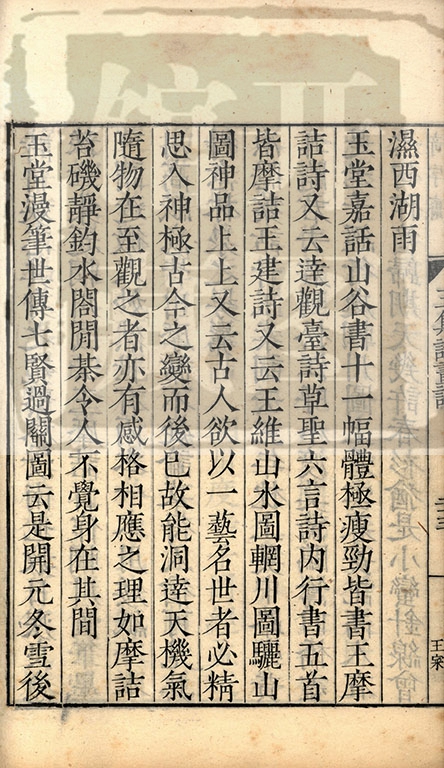 濕西湖雨
玉堂嘉話山谷書十一幅體極瘦勁皆書王摩
詰詩又云逹觀臺詩草聖六言詩内行書五首
皆摩詰王建詩又云王維山水圖輞川圖驪山
圖神品上上又云古人欲以一藝名世者必精
思入神極古今之變而後已故能洞逹天機氣
隨物在至觀之者亦有感格相應之理如摩詰
苔磯靜釣水閣閒棊令人不覺身在其間
玉堂漫筆世傳七賢過關圖云是開元冬雪後